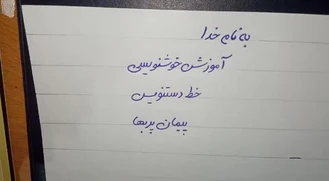 به نام خدا
آموزش خوشنویسی
خط دستنویس
پیمان پربها